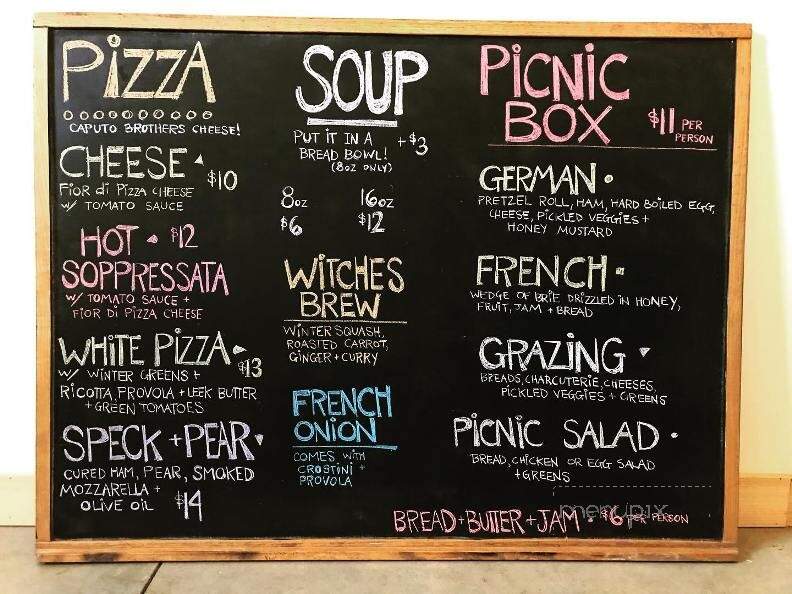 PIZZA
CAPUTO BROTHERS CHEESE!
CHEESE $10
FIOR di PIZZA CHEESE
w/ TOMATO SAUCE
HOT $12
SOPPRESSATA
w/ TOMATO SAUCE +
FIOR DI PIZZA CHEESE
WHITE PIZZA $13
w/ WINTER GREENS +
RICOTTA, PROVOLA + LEEK BUTTER
+ GREEN TOMATOES
SPECK + PEAR
CURED HAM, PEAR, SMOKED
MOZZARELLA +
OLIVE OIL $14
SOUP
PUT IT IN A
BREAD BOWL! + $3
(8OZ ONLY)
8oz 16oz
$6 $12
WITCHES
BREW
WINTER SQUASH,
ROASTED CARROT,
GINGER + CURRY
FRENCH
ONION
COMES WITH
CROSTINI +
PROVOLA
PICNIC
BOX $11 PER
PERSON
GERMAN
PRETZEL ROLL, HAM, HARD BOILED EGG,
CHEESE, PICKLED VEGGIES +
HONEY MUSTARD
FRENCH
WEDGE OF BRIE DRIZZLED IN HONEY,
FRUIT, JAM + BREAD
GRAZING
BREADS, CHARCUTERIE, CHEESES,
PICKLED VEGGIES + GREENS
PICNIC SALAD
BREAD, CHICKEN OR EGG SALAD
+ GREENS
BREAD + BUTTER + JAM • $6 PER PERSON
menupix